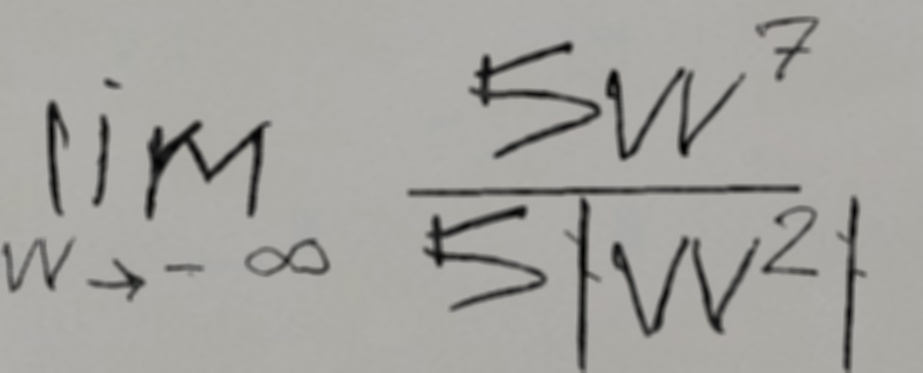 lim 5w^7
w→-∞ 5|w^2|